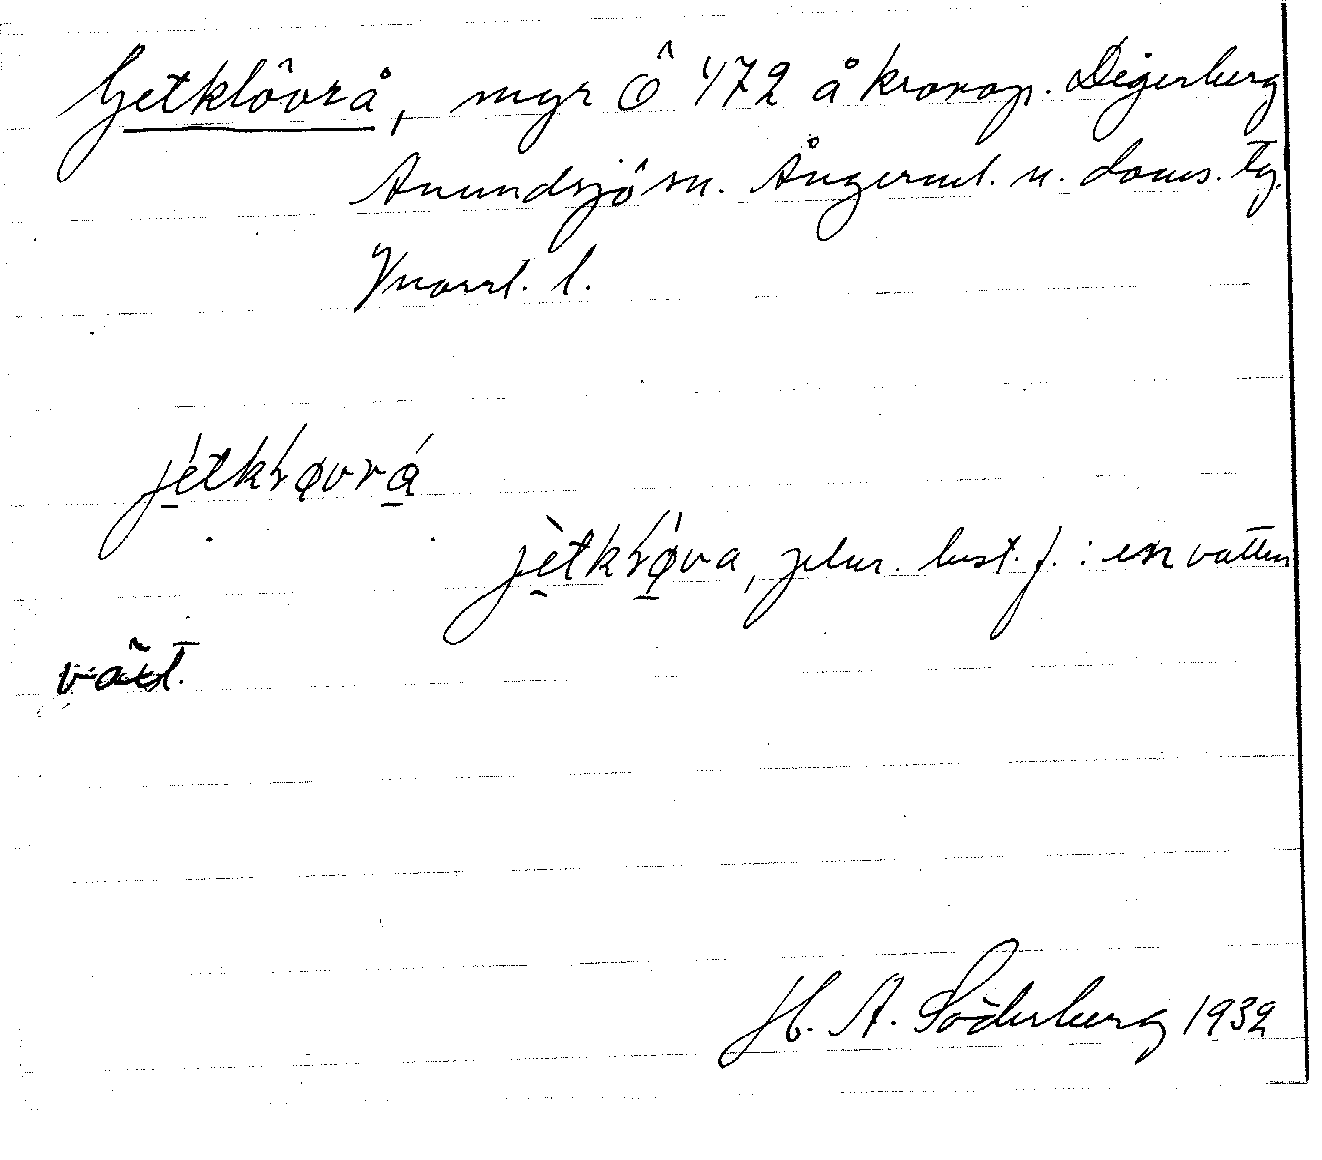 Getklôvrå, myr Ö 472 å kronop. Digerberg
Anundsjö sn. Ångerml. n. doms. tg.
Vnorrl. l.
jètkɽøvrá
jètkɽø̀va, plur. best. f. : en vatten
växt.
H. A. Söderberg 1932